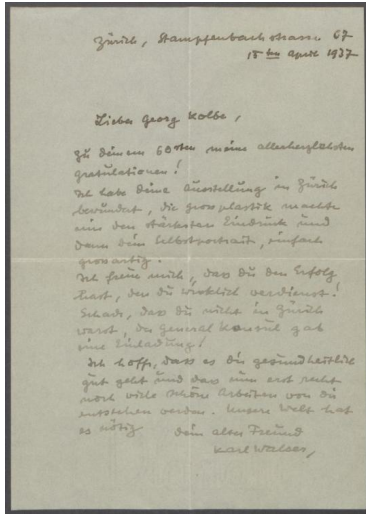 Zürich, Stampfenbachstrasse 67
15ten April 1937
Lieber Georg Kolbe,
Zu deinem 60sten meine allerherzlichsten
gratulationen!
Ich habe deine Ausstellung in Zürich
bewundert, die grossplastik machte
mir den stärksten Eindruck und
dann dein Selbstportrait, einfach
grossartig.
Ich freue mich, dass du den Erfolg
hast, den du wirklich verdienst!
Schade, dass du nicht in Zürich
warst, der General Konsul gab
eine Einladung!
Ich hoffe, dass es dir gesundheitlich
gut geht und dass nun erst recht
noch viele schöne Arbeiten von dir
entstehen werden. Unsere Welt hat
es nötig
dein alter Freund
Karl Walser,